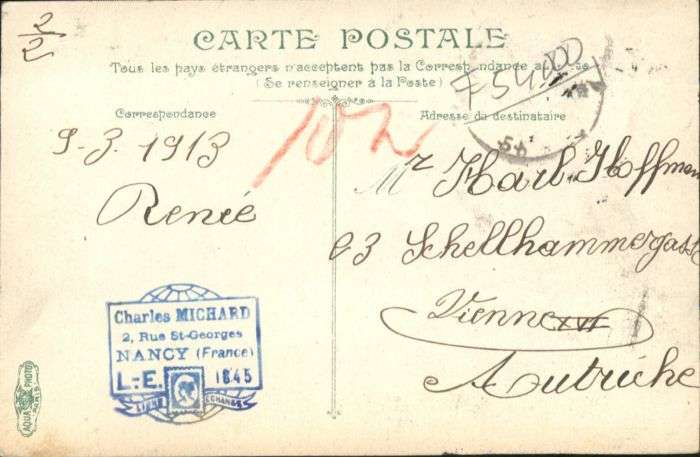 2/2
CARTE POSTALE
Tous les pays étrangers n'acceptent pas la Correspondance au
(Se renseigner à la Poste)
Correspondance
Adresse du destinataire
102
9-3. 1913
Renée
Mr Karl Hoffmen
23 Schellhammergasse
Vienne XVI
Autriche
Charles MICHARD
2, Rue St-Georges
NANCY (France)
L.-E. 1845
LIGUE ECHANGE
AQUA PHOTO
PARIS